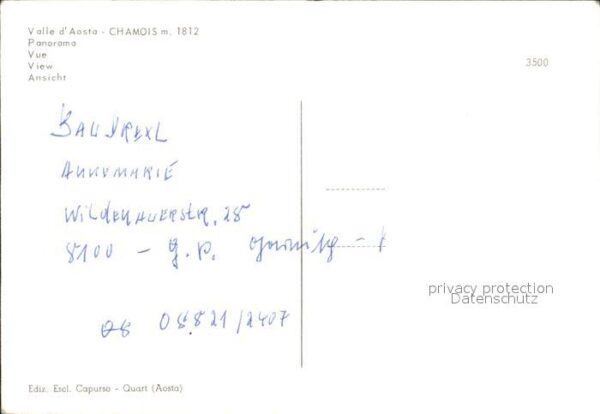 Valle d'Aosta - CHAMOIS m. 1812
Panorama
Vue
View
Ansicht
3500
BAUDREXL
ANNEMARIE
WildenAUERstr. 28
8100 - g.p.
08821/2407
privacy protection
Datenschutz
Ediz. Escl. Capurso - Quart (Aosta)